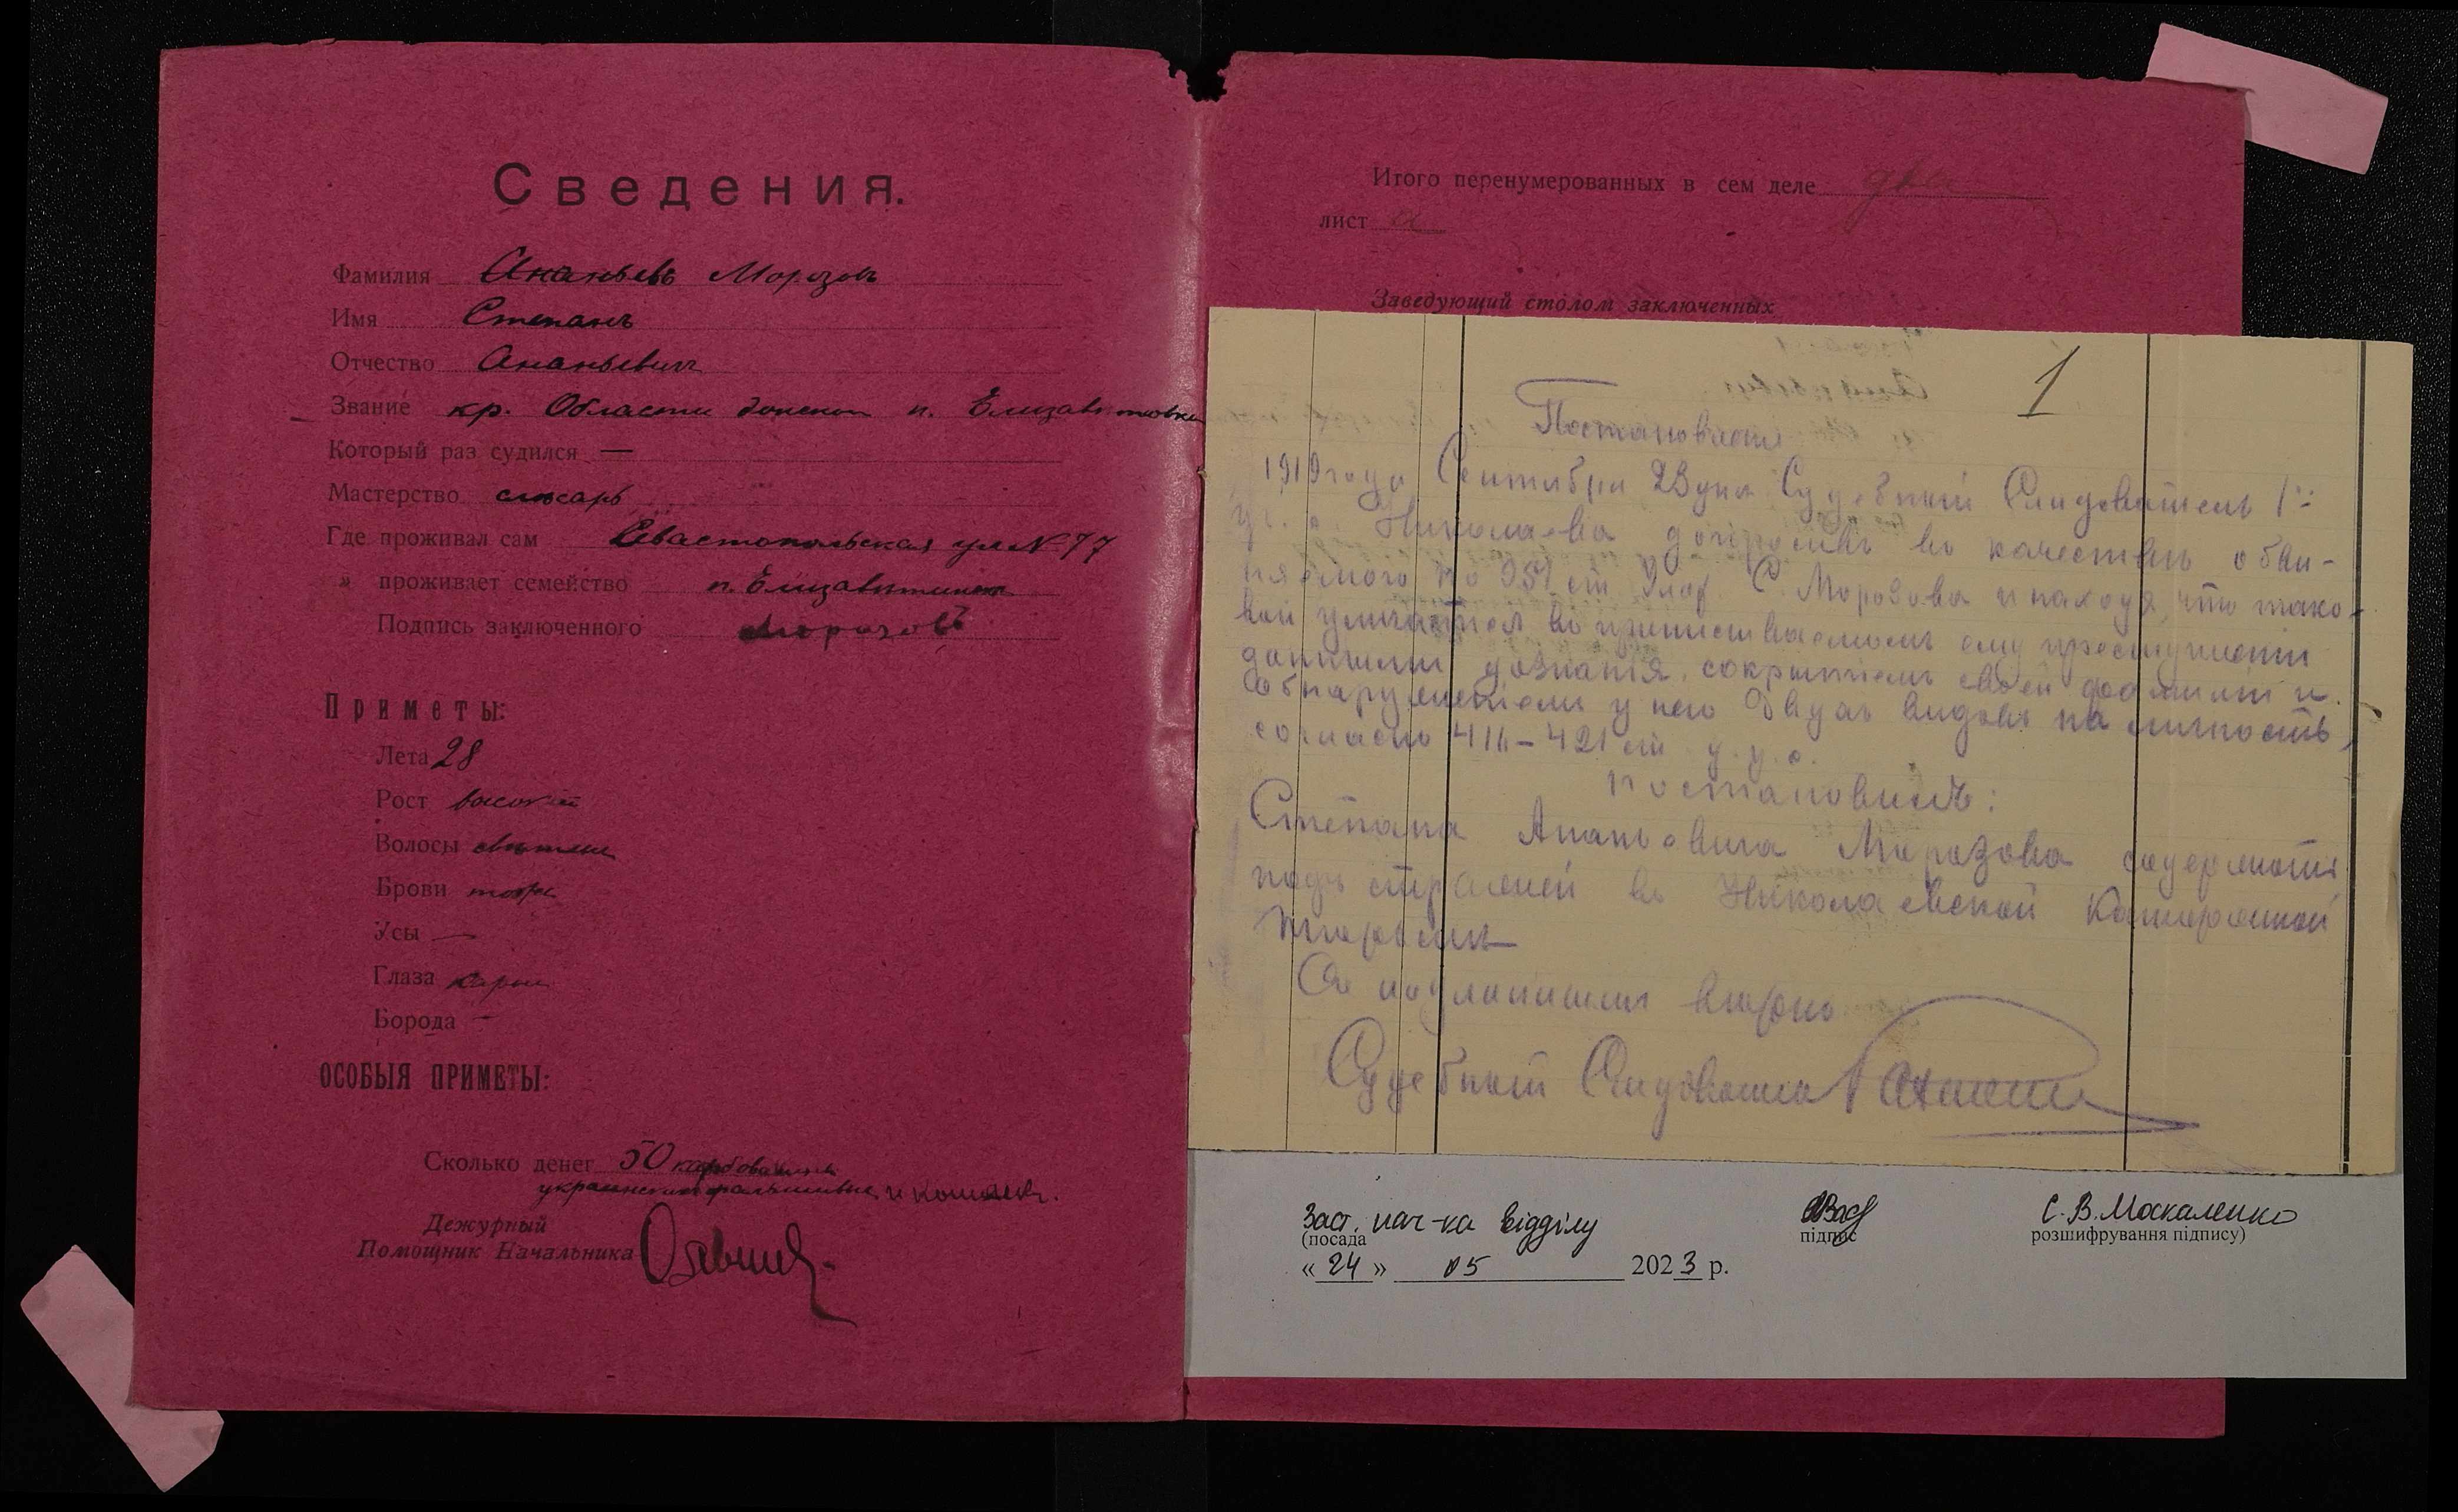 Сведения.
Фамилия Ананьевъ Морозовъ
Имя Степанъ
Отчество Ананьевич
Звание кр. Области донской п. Елизаветовки
Который раз судился —
Мастерство слесарь
Где проживал сам Севастопольская ул № 77
» проживает семейство п.
Подпись заключенного Морозовъ
Приметы:
Лета 28
Рост высокий
Волосы светлые
Брови тоже
Усы —
Глаза карие
Борода —
ОСОБЫЯ ПРИМЕТЫ:
Сколько денег 50 карбованцев
украинских фальшивые и кошелек.
Дежурный
Помощник Начальника
Итого перенумерованных в сем деле два
лист а
Заведующий столом заключенных
1
Постановление
1919 года Сентября 23 дня Судебный Следователь 1
уч. г. Николаева допросивъ въ качествѣ обви-
няемого по ст Улож С. Морозова и находя, что тако-
вой уличается въ приписываемомъ ему преступлении
данными дознанія, сокрытіемъ своей фамиліи и
обнаруженіемъ у него двухъ видовъ на личность,
согласно 416-421 ст у. у. с.
постановилъ:
Степана Ананьевича Морозова содержать
подъ стражей въ Николаевской Каторжной
тюрьмѣ
Съ подлиннымъ вѣрно
Судебный Следователь
Заст. нач-ка відділу
(посада підпис розшифрування підпису)
С. В. Москаленко
« 24 » 05 2023 р.